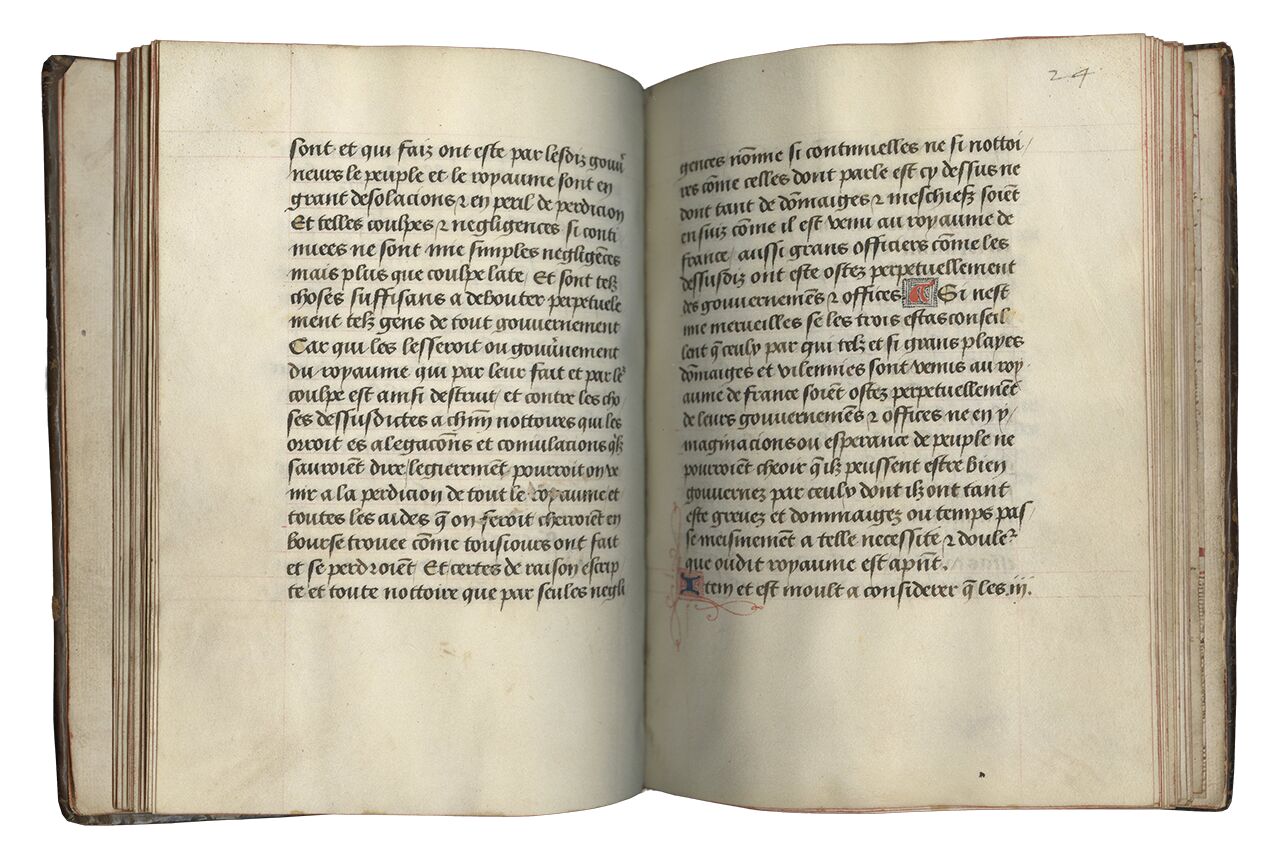 sont et qui faiz ont este par lesdiz gouũ
neurs le peuple et le royaume sont en
grant desolacions ⁊ en peril de perdicion
Et telles coulpes ⁊ negligences si conti
nuees ne sont mie simples negligẽces
mais plus que coulpe late / Et sont telz
choses suffisans a debouter perpetuele
ment telz gens de tout gouuernement
Car qui les lesseroit ou gouũnement
du royaume qui par leur fait et par le᷑
coulpe est ainsi destruit / et contre les cho
ses dessusdictes a chũn nottoires qui les
orroit es alegacõns et comulations q̃lz
sauroiẽt dire / legierement pourroit on ve
nir a la perdicion de tout le royaume et
toutes les aides q̃ on feroit cherroiẽt en
bourse trouee cõme tousiours ont fait
et se perdroiẽt Et certes de raison escrip
te et toute nottoire que par seules negli
24
gences nõnne si continuelles ne si nottoi/
res cõme celles dont parle est cy dessus ne
dont tant de dõmaiges ⁊ meschiefz soiẽt
ensuiz cõme il est venu au royaume de
france / aussi grans officiers cõme les
dessusdiz ont este ostez perpetuellement
des gouuernemẽs ⁊ offices Si nest
mie merueilles se les trois estas conseil
lent q̃ ceulx par qui telz et si grans playes
dõmaiges et vilennies sont venus au roy
aume de france soiẽt ostez perpetuellemẽt
de leurs gouuernemẽs ⁊ offices ne en y/
maginacions ou esperance de peuple ne
pourroiẽt cheoir q̃ ilz peussent estre bien
gouuernez par ceulx dont ilz ont tant
este greuez et dommaigez ou temps pas/
se meismement a telle necessite ⁊ doule᷑
que oudit royaume est apñt.
Item et est moult a considerer q̃ les .iii.